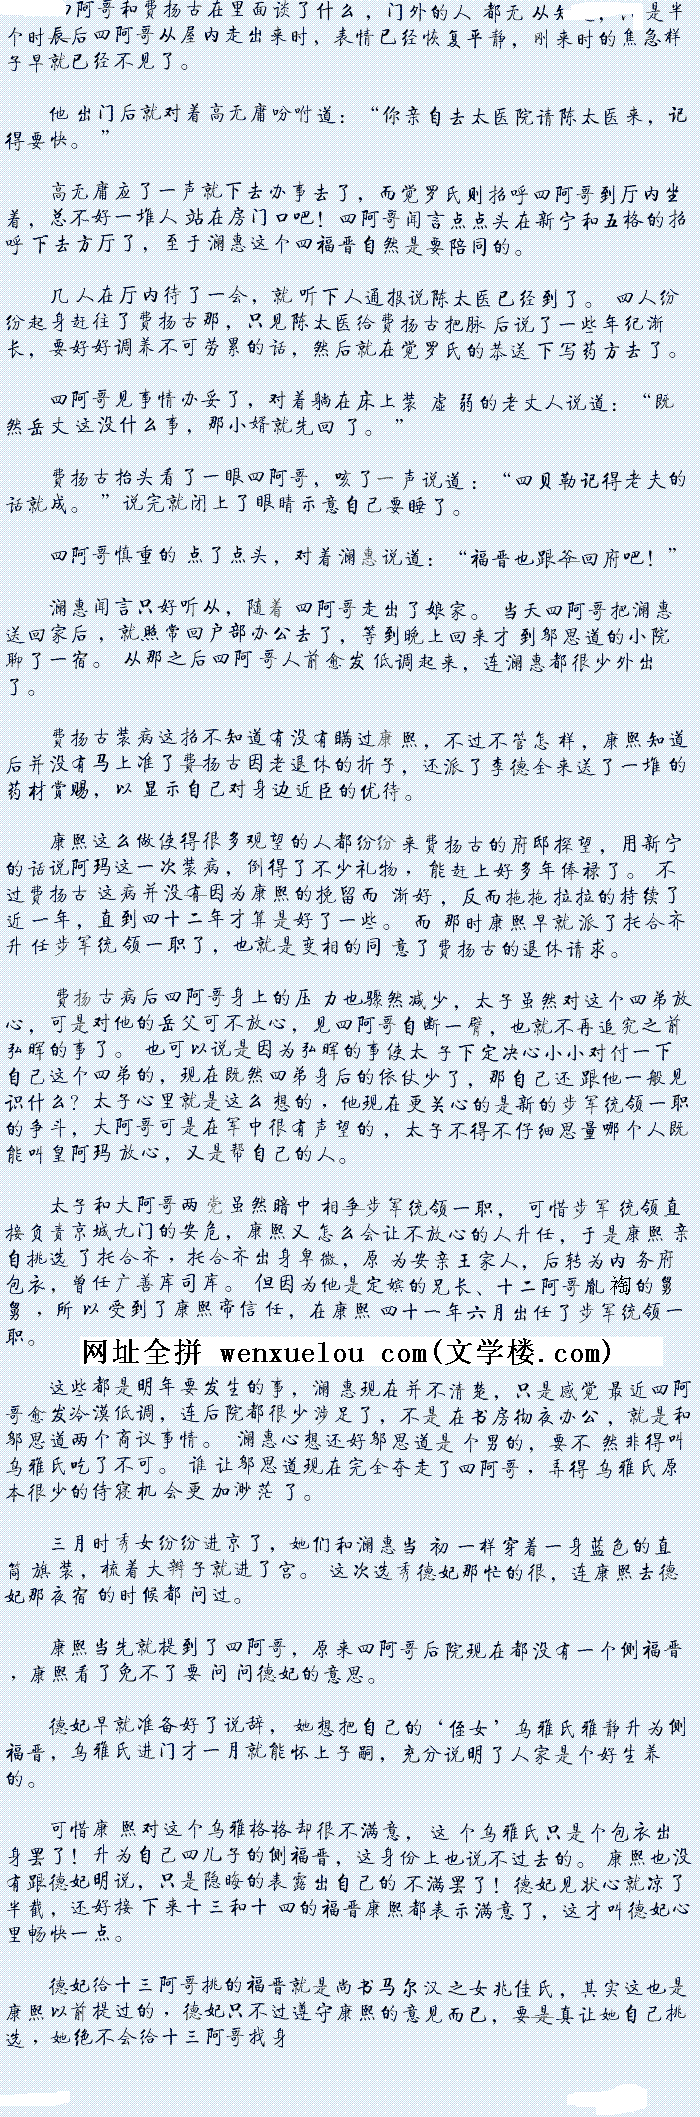 阿哥和费扬古在里面谈了什么，门外的人 都无 从知 是半
个时辰后四阿哥从屋内走出来时，表情已经恢复平静，刚来时的焦急样
子早就已经不见了。
他 出门后就对着高无庸吩咐道：“你亲自去太医院请陈太医来，记
得要快。”
高无庸应了一声就下去办事去了，而觉罗氏则招呼四阿哥到厅内坐
着，总不好一堆人 站在房门口吧！ 四阿哥闻言点点头在新宁和五格的招
呼 下去方厅了，至于澜惠这个四福晋自然是要陪同的。
几 人在厅内待了一会，就 听下人通报说陈太医已经到了。 四人纷
纷起身赶往了费扬古那，只见陈太医给费扬古把脉 后说了一些年纪渐
长，要好好调养不可劳累的话，然后就在觉罗氏的恭送 下写药方去了。
四阿哥见事情办妥了，对着躺在床上装 虚 弱的老丈人说道：“既
然岳丈 这没什么事，那小婿就先回 了。”
费扬古抬头看了一眼四阿哥，咳了一声说道：“四贝勒记得老夫的
话就成。 ”说完就闭上了眼睛示意自己要睡了。
四阿哥慎重的 点了点头，对着澜惠说道：“福晋也跟爷回府吧！”
澜惠闻言只好听从，随着 四阿哥走出了娘家。 当天四阿哥把澜惠
送回家后 ，就照常回户部办公去了，等到晚上回来才 到邬思道的小院
聊了一宿。 从那之后四阿 哥人前愈发 低调起来，连澜惠都很少外出
了。
费扬古装病这招不知道有没有瞒过康 熙，不过不管怎样，康熙知道
后并没有马上准了费扬古因老退休的折子，还派了李德全来送了一堆 的
药材赏赐，以 显示自己对身边近臣的优待。
康熙这么做使得很多观望的人都纷纷 来费扬古的府邸探望，用新宁
的话说阿玛这一次装病，倒得了不少礼物，能赶上好多年俸禄了。 不
过费扬古 这病并没有因为康熙的挽留而 渐好，反而拖拖拉拉的持续了
近 一年，直到四十二年才算是好了一些。 而 那时康熙早就派了托合齐
升 任步军统 领一职了，也就是变相的同 意了费扬古的退休请求。
费扬古 病后四阿哥身上的压 力也骤然减少，太子虽然对这个四弟放
心，可是对他的岳父可不放心，见四阿哥自断一臂，也就不再追究之前
弘晖的事了。 也可以说是因为弘晖的事使太 子下定决心小小对付一下
自己这个四弟的，现在既然四弟身后的依仗少了，那自己还跟他一般见
识什么？太子心里就是这么 想的，他现在更关心的是新的步军统领一职
的争斗，大阿哥可是在军中很有声望的，太子不得不仔细思量哪个人既
能叫皇阿玛 放心，又是帮自己的人。
太子和大阿哥两 党虽然暗中 相争步军统领一职， 可惜步军 统领直
接负责京城九门的安危，康熙又 怎么会让不放心的人升任，于是康熙 亲
自挑选 了托合齐，托合齐出身卑微，原 为安亲王家人，后转为内 务府
包衣，曾任广善库司库。 但因为他是定嫔的兄长、十二阿哥胤 裪的舅
舅 ，所 以受到了康熙帝信 任，在康熙 四十一年六月出任了步军统领一
职。
网址全拼 wenxuelou com(文学楼.com)
这些都是明年要发生的事，澜 惠现在并不清楚，只是感觉 最近四阿
哥愈发冷漠低调，连后院都很少涉足了，不是 在书房彻夜办公 ，就是和
邬思道两个商议事情。 澜惠心想还好邬思道是 个男的，要不 然非得叫
乌雅氏吃了不可。 谁 让邬思道现在完全夺走了四阿哥，弄得 乌雅氏原
本很少的侍寝机 会更 加渺茫 了。
三月时秀女纷纷进京了，她们和澜惠当 初 一样穿着一身蓝色的直
筒 旗 装，梳着大辫子就进了宫。 这次选秀德妃那忙的很，连康熙去德
妃那夜宿 的时候都 问过。
康熙当先就提到了四阿哥，原来四阿哥后院现在都没有一个侧福晋
，康熙看了免不了要 问 问德妃的意思。
德妃早就准备好了说辞， 她想把自己的‘侄女’乌雅氏雅静升 为侧
福晋，乌雅氏进门才一月就能怀上子嗣，充分说明了人家是个好生养
的。
可惜康 熙对这个乌雅格格却很不满意， 这 个乌雅氏只是个包衣出
身罢了！ 升为自己四儿子的侧福晋，这身份上也说不过去的。 康熙也没
有跟德妃明说，只是隐晦的表露出自己的 不满罢了！ 德妃见状心就凉了
半截，还好接 下来十三和十 四的福晋康熙都表示满意了，这才叫德妃心
里畅快一点。
德妃给十三阿哥挑的福晋就是尚书马尔汉之女兆佳氏，其实这也是
康熙以前提过的，德妃只不过遵守康熙的意见而已，要是真让她自己挑
选，她绝不会给十三阿哥找身